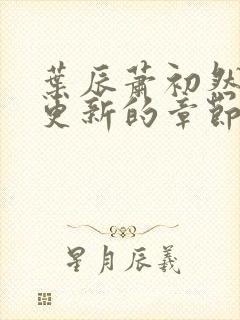 葉辰蕭初然
更新的章節
星月辰羲